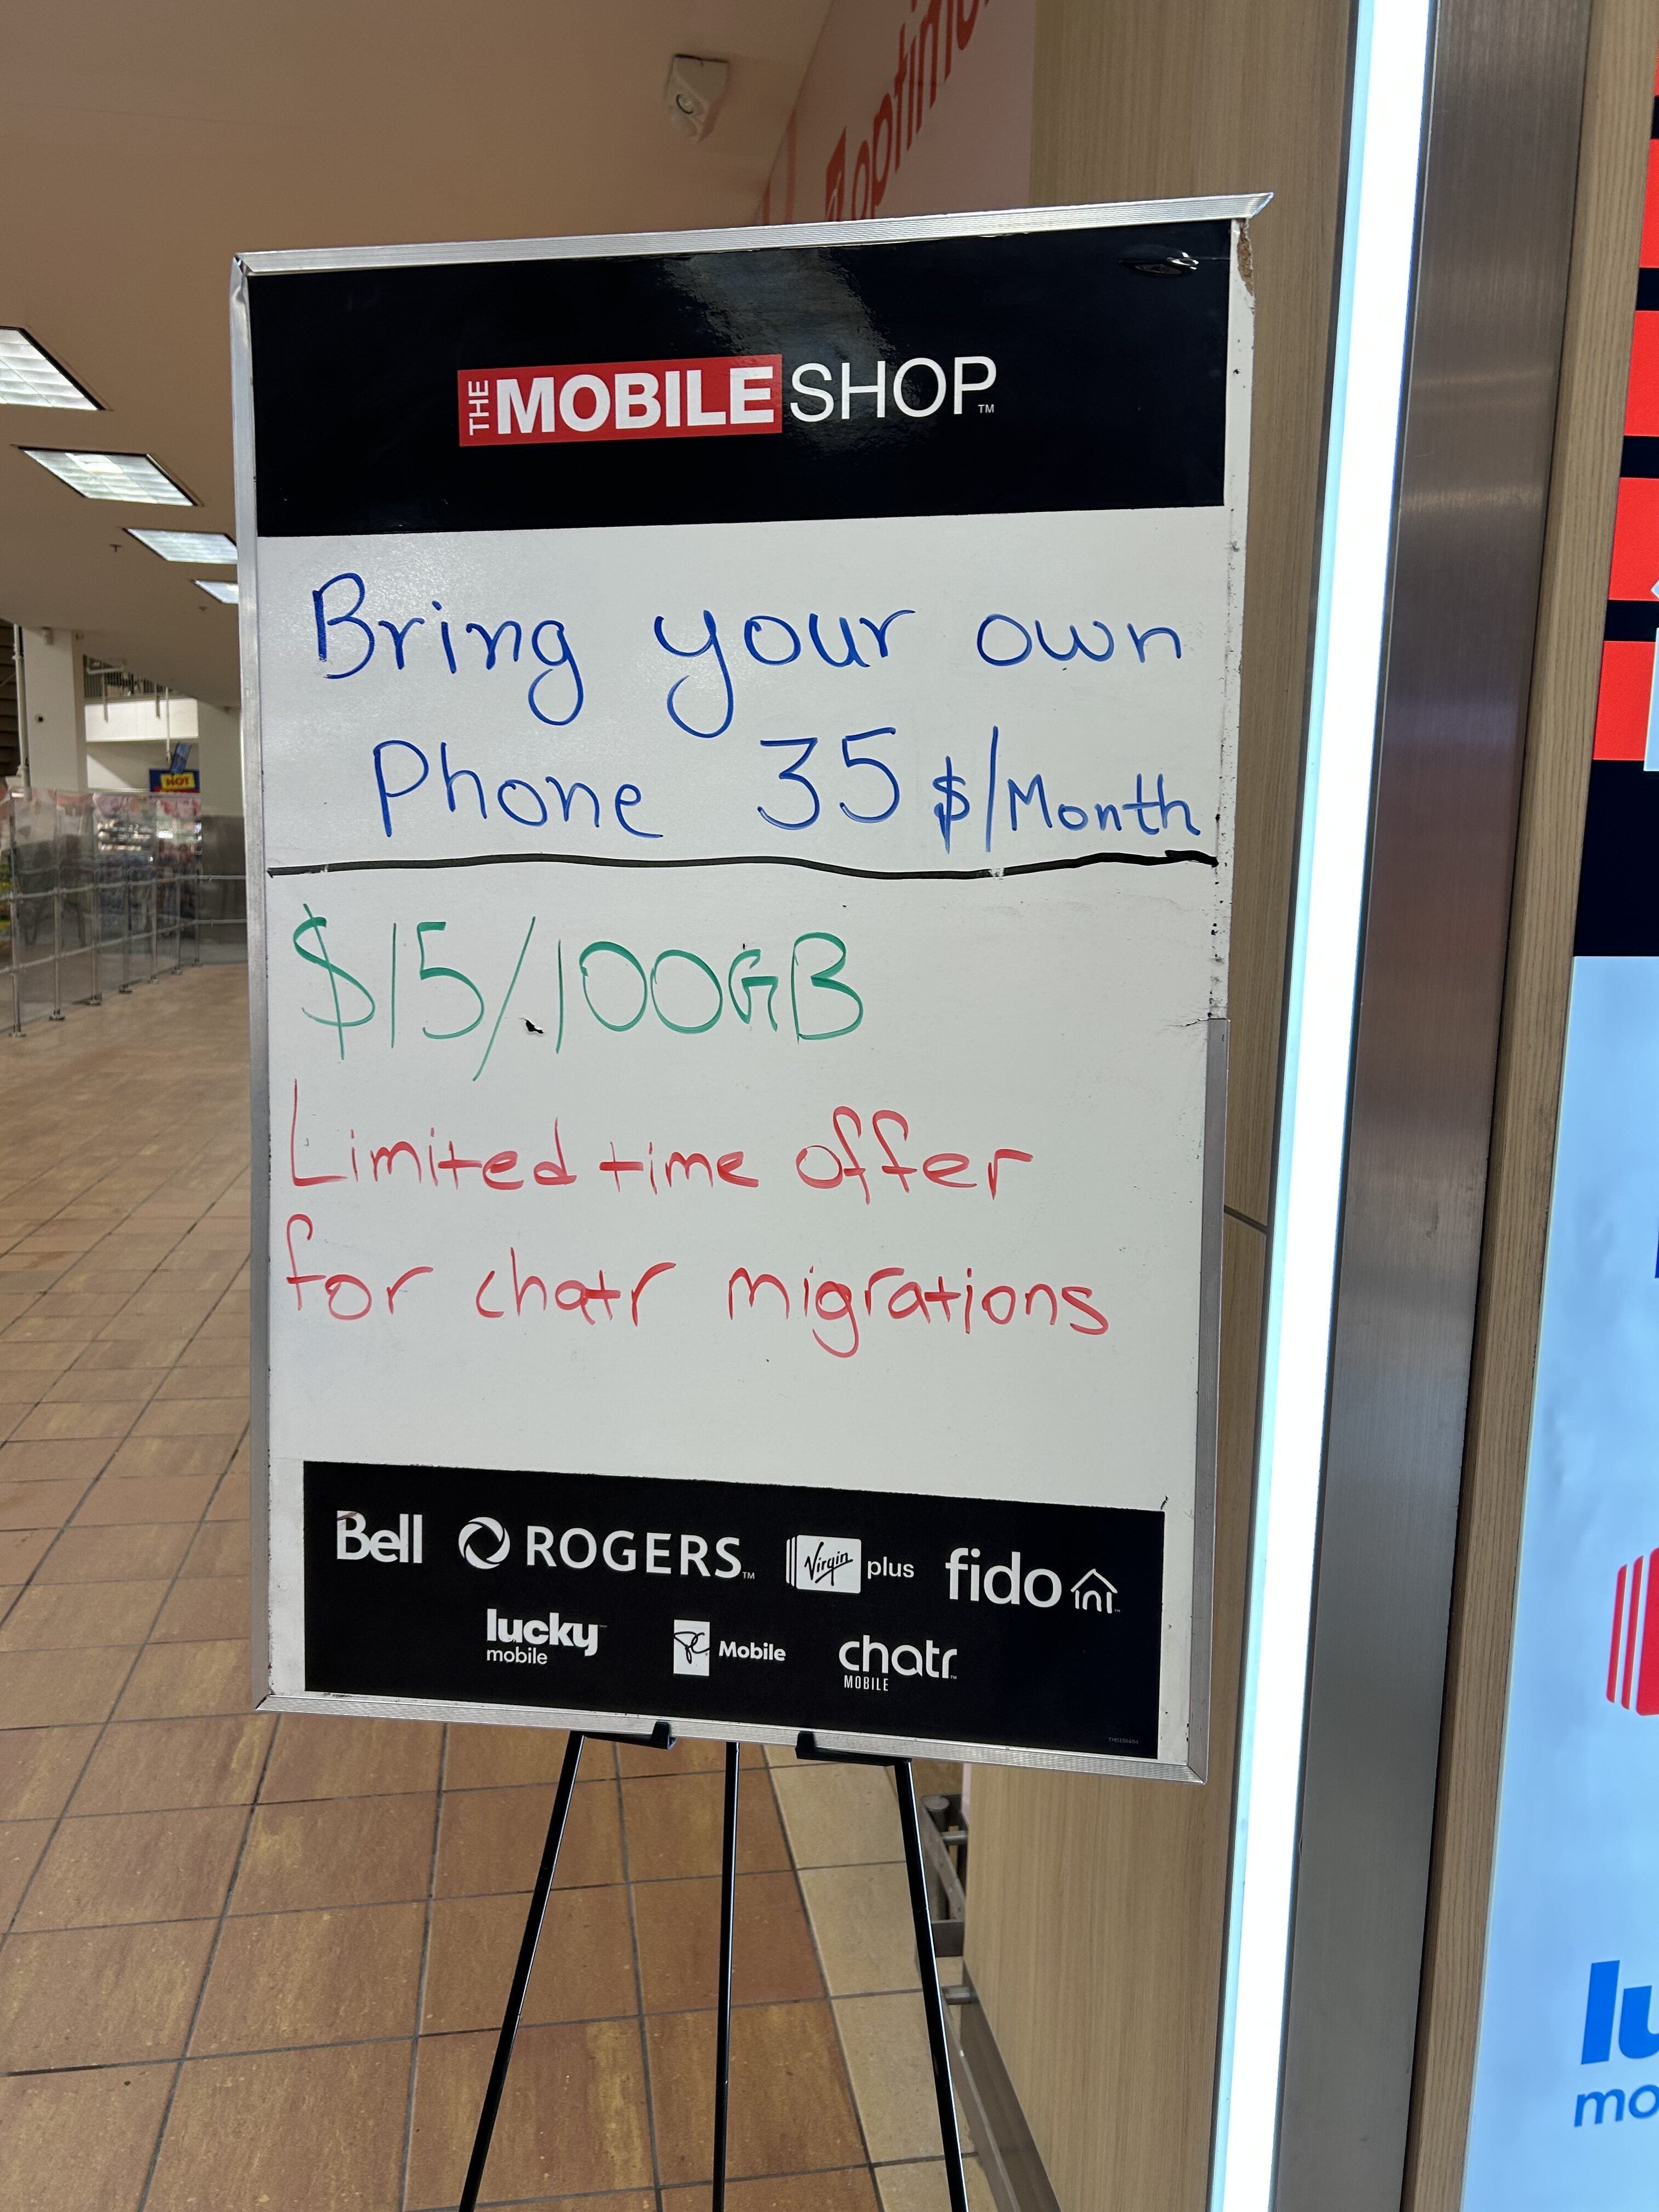 optimu
THE MOBILE SHOP™
Bring your own
Phone 35 $/Month
$15/100GB
Limited time offer
for chatr migrations
Bell ROGERS™ Virgin plus fido
lucky mobile PC Mobile chatr MOBILE
HOT
lu
mo